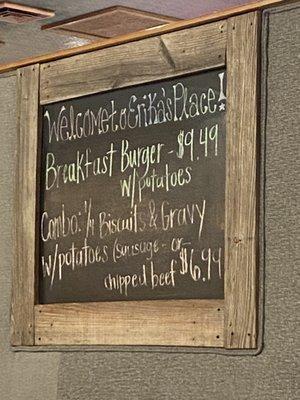 Welcome to Erika's Place!
Breakfast Burger - $9.49
w/potatoes
Combo: 1/1 Biscuits & Gravy
w/potatoes (sausage - or -
chipped beef $6.99